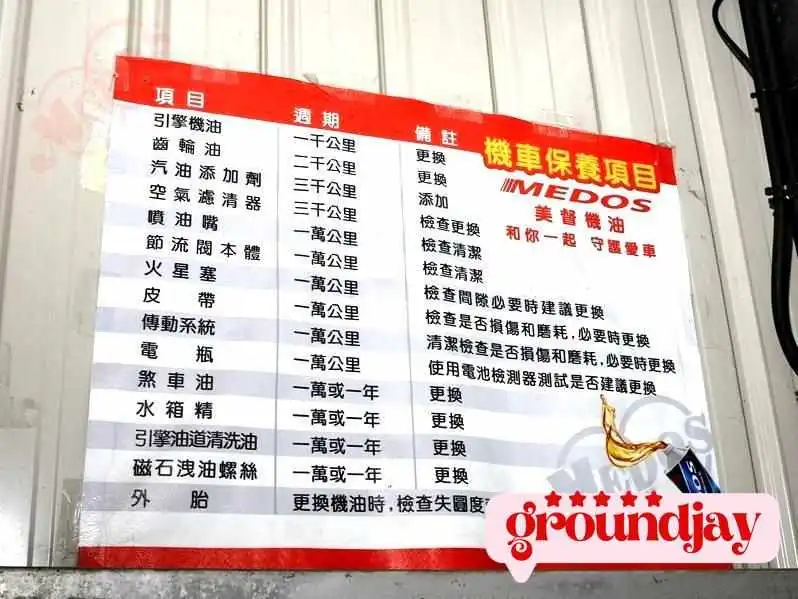 項目 週期 備註
機車保養項目
MEDOS
美督機油
和你一起 守護愛車
引擎機油 一千公里 更換
齒輪油 二千公里 更換
汽油添加劑 三千公里 添加
空氣濾清器 三千公里 檢查更換
噴油嘴 一萬公里 檢查清潔
節流閥本體 一萬公里 檢查清潔
火星塞 一萬公里 檢查間隙必要時建議更換
皮帶 一萬公里 檢查是否損傷和磨耗,必要時更換
傳動系統 一萬公里 清潔檢查是否損傷和磨耗,必要時更換
電瓶 一萬公里 使用電池檢測器測試是否建議更換
煞車油 一萬或一年 更換
水箱精 一萬或一年 更換
引擎油道清洗油 一萬或一年 更換
磁石洩油螺絲 一萬或一年 更換
外胎 更換機油時,檢查失圓度
MEDOS
groundjay